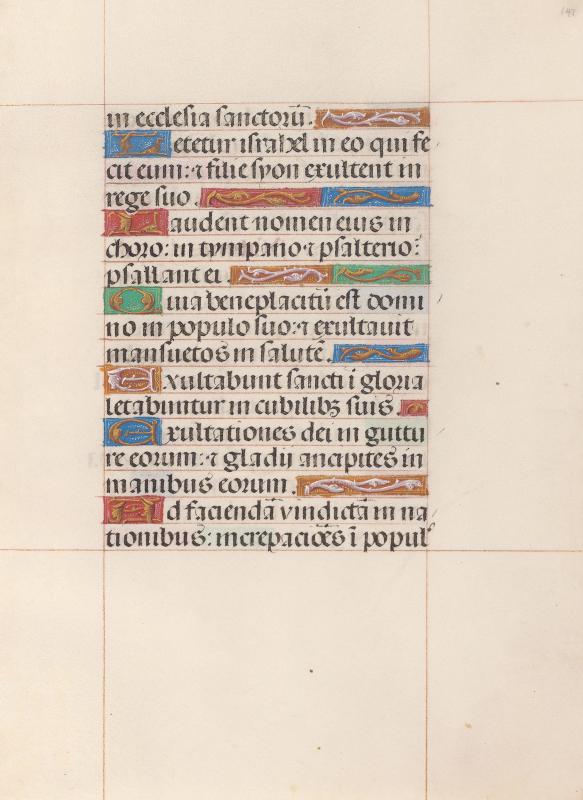 147
in ecclesia sanctorū.
Letetur israhel in eo qui fe
cit eum: ⁊ filie syon exultent in
rege suo.
Laudent nomen eius in
choro: in tympano ⁊ psalterio:
psallant ei.
Quia beneplacitū est domi
no in populo suo: ⁊ exultauit
mansuetos in salutē.
Exultabunt sancti ī gloria
letabuntur in cubilibꝫ suis.
Exultationes dei in guttu
re eorum: ⁊ gladii ancipites in
manibus eorum.
Ad faciendā vindictā in na
tionibus: increpacioēs ī popul᷒